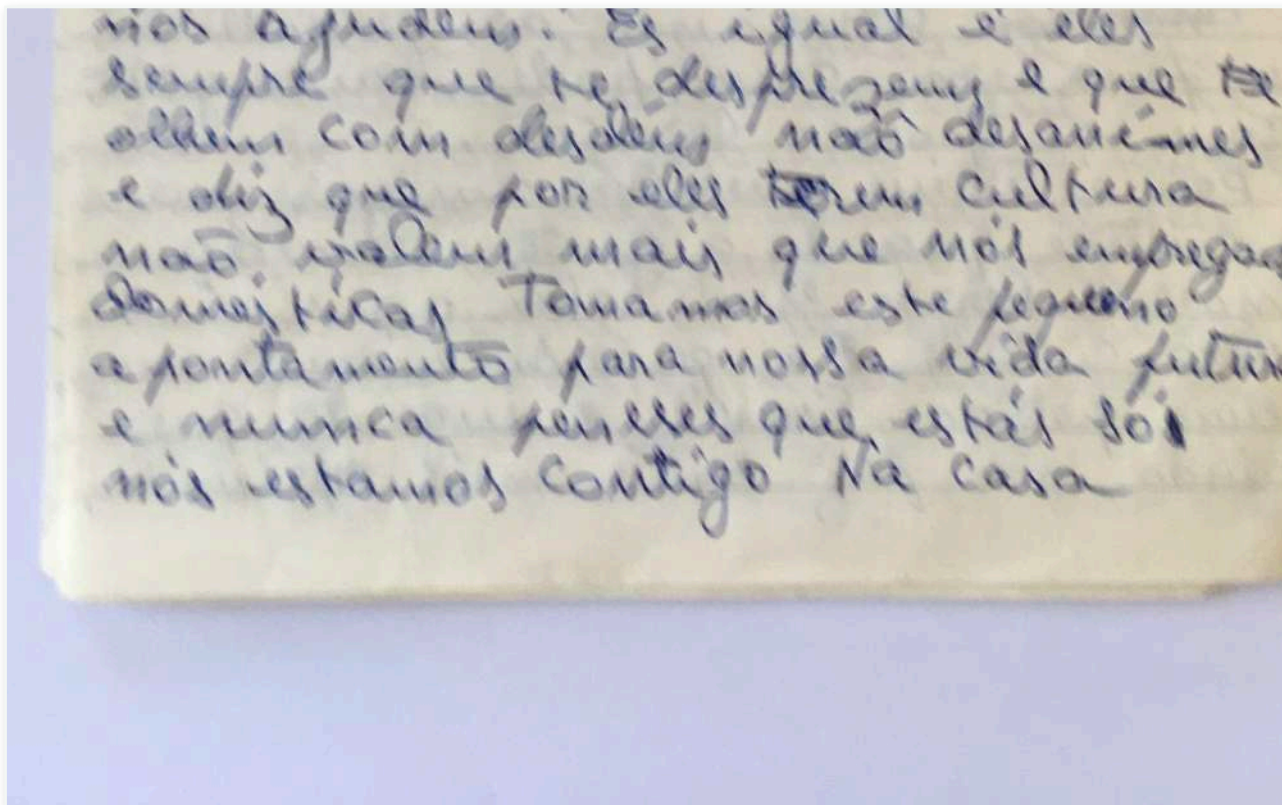 nós ajudem. És igual é eles
sempre que te desprezem e que te
olhem com desdém não desanimes
e diz que por eles terem cultura
não valem mais que nós empregad
domésticas Tomamos este pequeno
apontamento para nossa vida futur
e nunca penses que estás só
nós estamos contigo Na Casa